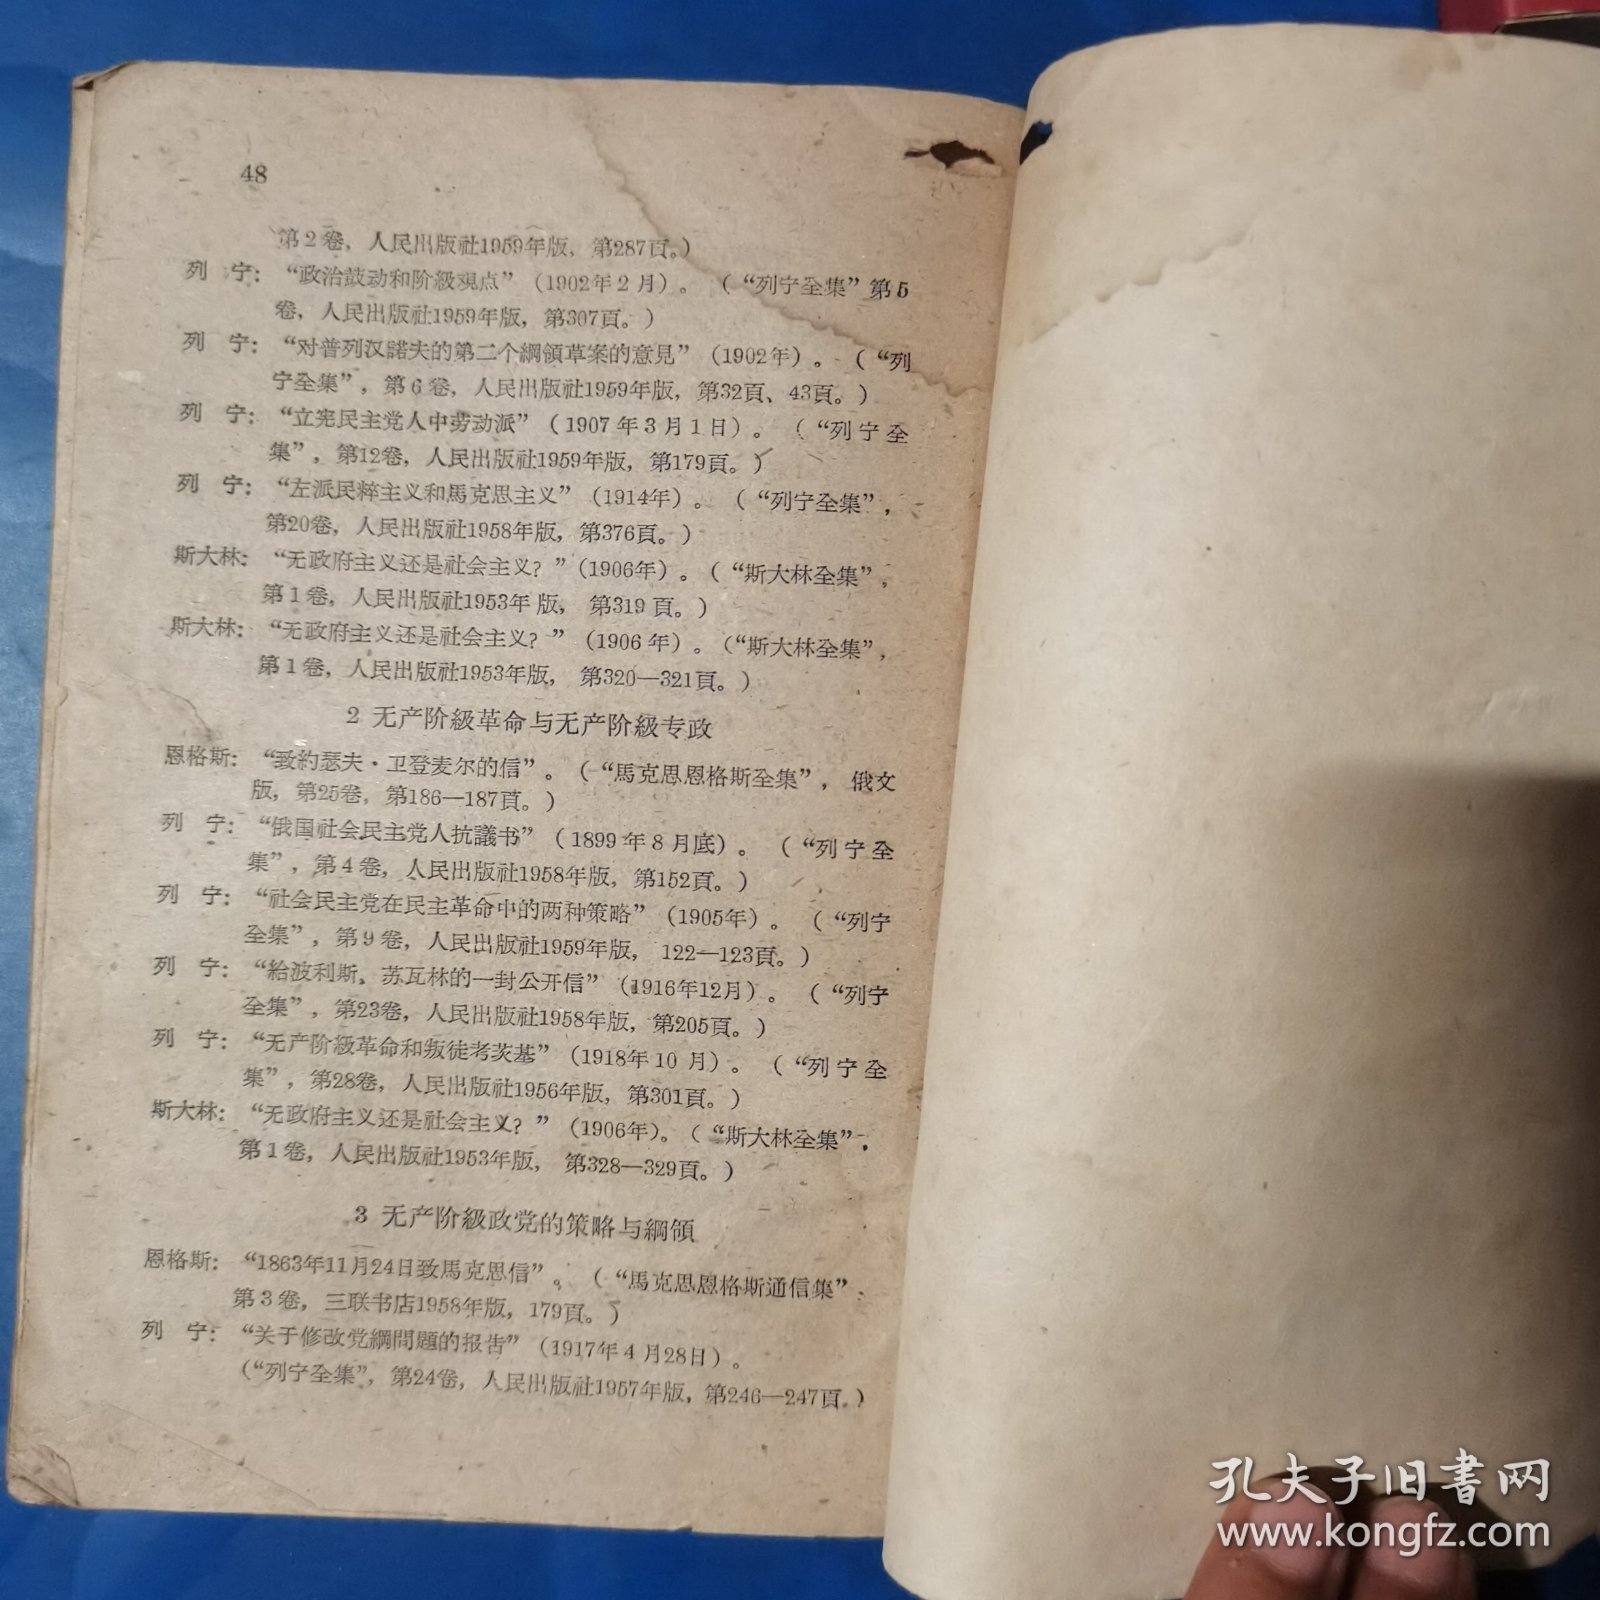 48
第2卷，人民出版社1959年版，第287頁。）
列　宁：“政治鼓动和阶級观点”（1902年2月）。（“列宁全集”第5
卷，人民出版社1959年版，第307頁。）
列　宁：“对普列汉諾夫的第二个綱領草案的意見”（1902年）。（“列
宁全集”，第6卷，人民出版社1959年版，第32頁、43頁。）
列　宁：“立宪民主党人中劳动派”（1907年3月1日）。（“列宁全
集”，第12卷，人民出版社1959年版，第179頁。）
列　宁：“左派民粹主义和馬克思主义”（1914年）。（“列宁全集”，
第20卷，人民出版社1958年版，第376頁。）
斯大林：“无政府主义还是社会主义？”（1906年）。（“斯大林全集”，
第1卷，人民出版社1953年版，第319頁。）
斯大林：“无政府主义还是社会主义？”（1906年）。（“斯大林全集”，
第1卷，人民出版社1953年版，第320—321頁。）
2 无产阶級革命与无产阶級专政
恩格斯：“致約瑟夫·卫登麦尔的信”。（“馬克思恩格斯全集”，俄文
版，第25卷，第186—187頁。）
列　宁：“俄国社会民主党人抗議书”（1899年8月底）。（“列宁全
集”，第4卷，人民出版社1958年版，第152頁。）
列　宁：“社会民主党在民主革命中的两种策略”（1905年）。（“列宁
全集”，第9卷，人民出版社1959年版，122—123頁。）
列　宁：“給波利斯、苏瓦林的一封公开信”（1916年12月）。（“列宁
全集”，第23卷，人民出版社1958年版，第205頁。）
列　宁：“无产阶級革命和叛徒考茨基”（1918年10月）。（“列宁全
集”，第28卷，人民出版社1956年版，第301頁。）
斯大林：“无政府主义还是社会主义？”（1906年）。（“斯大林全集”，
第1卷，人民出版社1953年版，第328—329頁。）
3 无产阶級政党的策略与綱領
恩格斯：“1863年11月24日致馬克思信”。（“馬克思恩格斯通信集”，
第3卷，三联书店1958年版，179頁。）
列　宁：“关于修改党綱問題的报告”（1917年4月28日）。
（“列宁全集”，第24卷，人民出版社1957年版，第246—247頁。）
孔夫子旧書网
www.kongfz.com